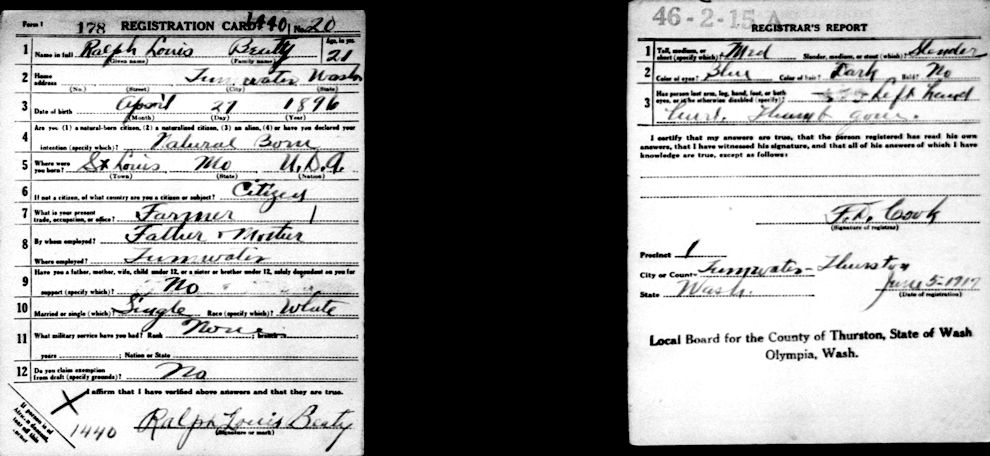 Form 1 178 REGISTRATION CARD 1440 No. 20
1 Name in full Ralph Louis Beaty Age, in yrs. 21
(Given name) (Family name)
2 Home address Tumwater Wash
(No.) (Street) (City) (State)
3 Date of birth April 21 1896
(Month) (Day) (Year)
4 Are you (1) a natural-born citizen, (2) a naturalized citizen, (3) an alien, (4) or have you declared your
intention (specify which)? Natural Born
5 Where were you born? St Louis Mo U.S.A.
(Town) (State) (Nation)
6 If not a citizen, of what country are you a citizen or subject? Citizen
7 What is your present trade, occupation, or office? Farmer 1
8 By whom employed? Father & Mother
Where employed? Tumwater
9 Have you a father, mother, wife, child under 12, or a sister or brother under 12, solely dependent on you for
support (specify which)? No
10 Married or single (which)? Single Race (specify which)? White
11 What military service have you had? Rank None ; branch
years ; Nation or State
12 Do you claim exemption from draft (specify grounds)? No
I affirm that I have verified above answers and that they are true.
X
1440 Ralph Louis Beaty
(Signature or mark)
If person is of
tear off this
46-2-15 A
REGISTRAR'S REPORT
1 Tall, medium, or short (specify which)? Med Slender, medium, or stout (which)? Slender
2 Color of eyes? Blue Color of hair? Dark Bald? No
3 Has person lost arm, leg, hand, foot, or both
eyes, or is he otherwise disabled (specify)? Left hand
hurt. Thumb gone.
I certify that my answers are true, that the person registered has read his own
answers, that I have witnessed his signature, and that all of his answers of which I have
knowledge are true, except as follows:
F. D. Cook
(Signature of registrar)
Precinct 1
City or County Tumwater - Thurston
State Wash. June 5-1917
(Date of registration)
Local Board for the County of Thurston, State of Wash
Olympia, Wash.